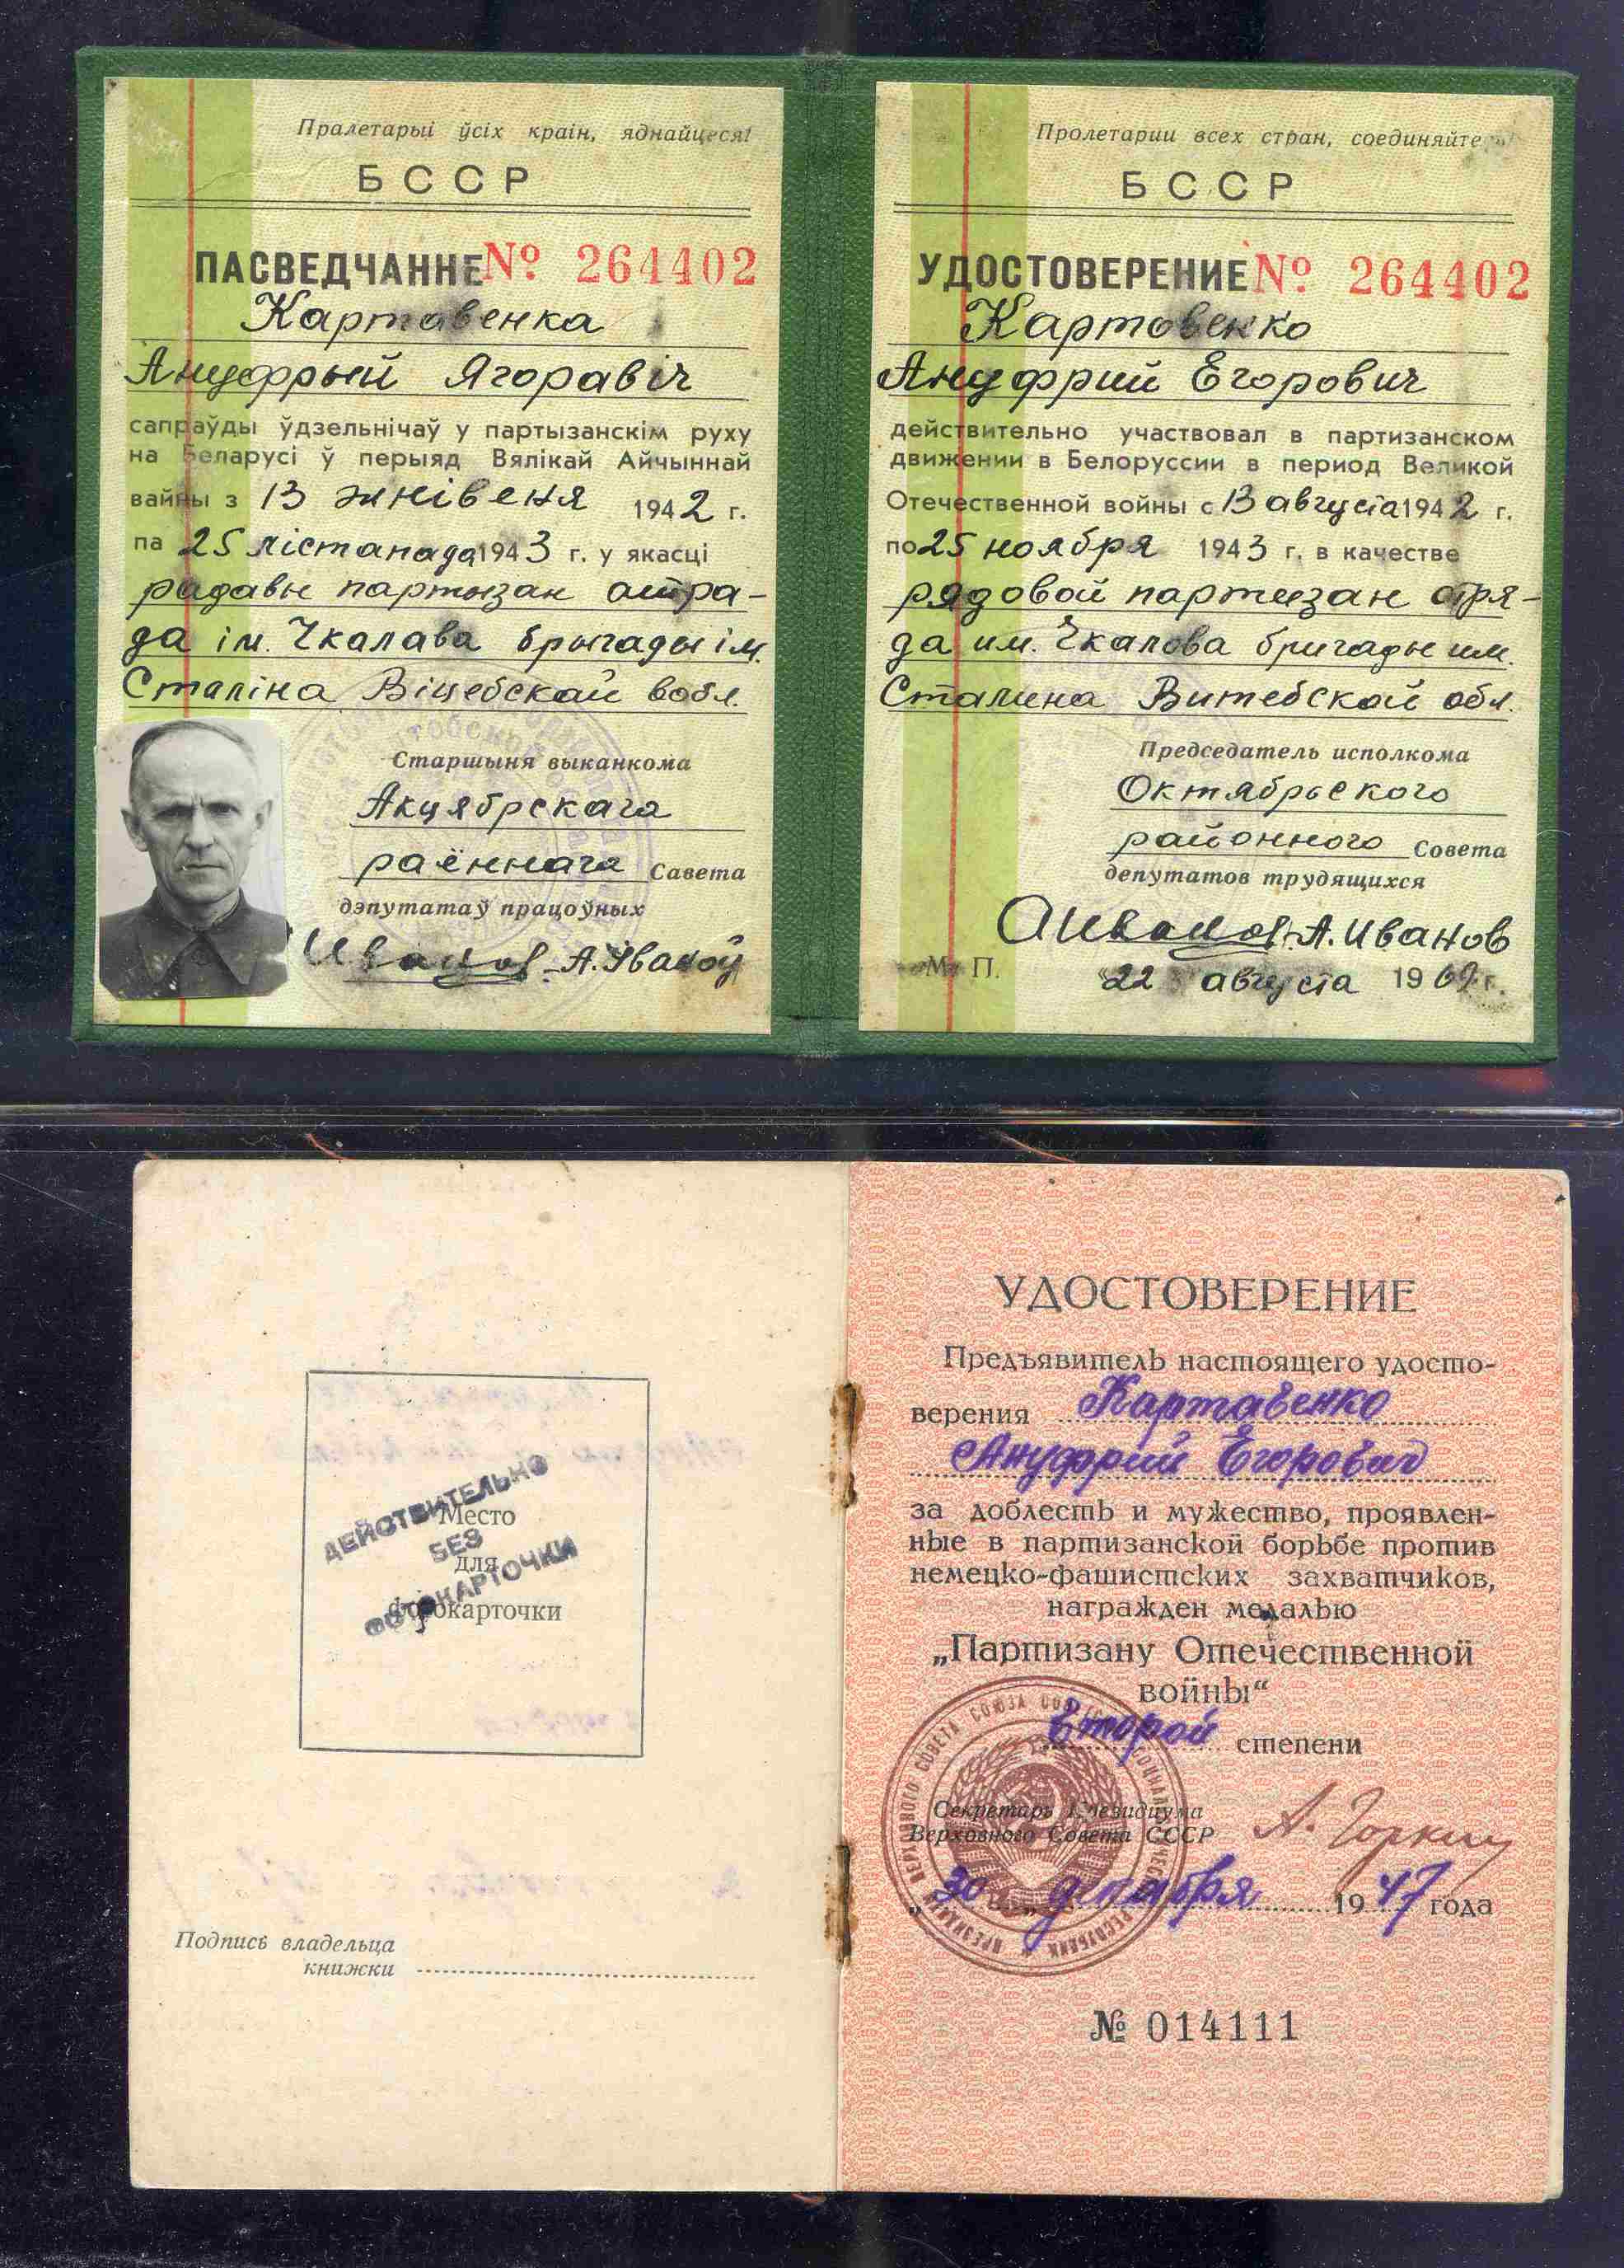 Пралетарыі ўсіх краін, яднайцеся!
БССР
ПАСВЕДЧАННЕ № 264402
Картавенка
Ануфрый Ягоравіч
сапраўды ўдзельнічаў у партызанскім руху
на Беларусі ў перыяд Вялікай Айчыннай
вайны з 13 жнівеня 1942 г.
па 25 лістапада 1943 г. у якасці
радавы партызан атра-
да ім. Чкалава брыгады ім.
Сталіна Віцебскай вобл.
Старшыня выканкома
Акцябрскага
раённага Савета
дэпутатаў працоўных
Иванов А. Іваноў
Пролетарии всех стран, соединяйтесь!
БССР
УДОСТОВЕРЕНИЕ № 264402
Картовенко
Ануфрий Егорович
действительно участвовал в партизанском
движении в Белоруссии в период Великой
Отечественной войны с 13 августа 1942 г.
по 25 ноября 1943 г. в качестве
рядовой партизан отря-
да им. Чкалова бригады им.
Сталина Витебской обл.
Председатель исполкома
Октябрьского
районного Совета
депутатов трудящихся
АИванов А. Иванов
М. П.
"22" августа 1969 г.
Место
для
фотокарточки
ДЕЙСТВИТЕЛЬНО
БЕЗ
ФОТОКАРТОЧКИ
Подпись владельца
книжки
УДОСТОВЕРЕНИЕ
Предъявитель настоящего удосто-
верения Картавенко
Ануфрий Егорович
за доблесть и мужество, проявлен-
ные в партизанской борьбе против
немецко-фашистских захватчиков,
награжден медалью
„Партизану Отечественной
войны“
второй степени
Секретарь Президиума
Верховного Совета СССР А. Горкин
„30“ декабря 1947 года
№ 014111